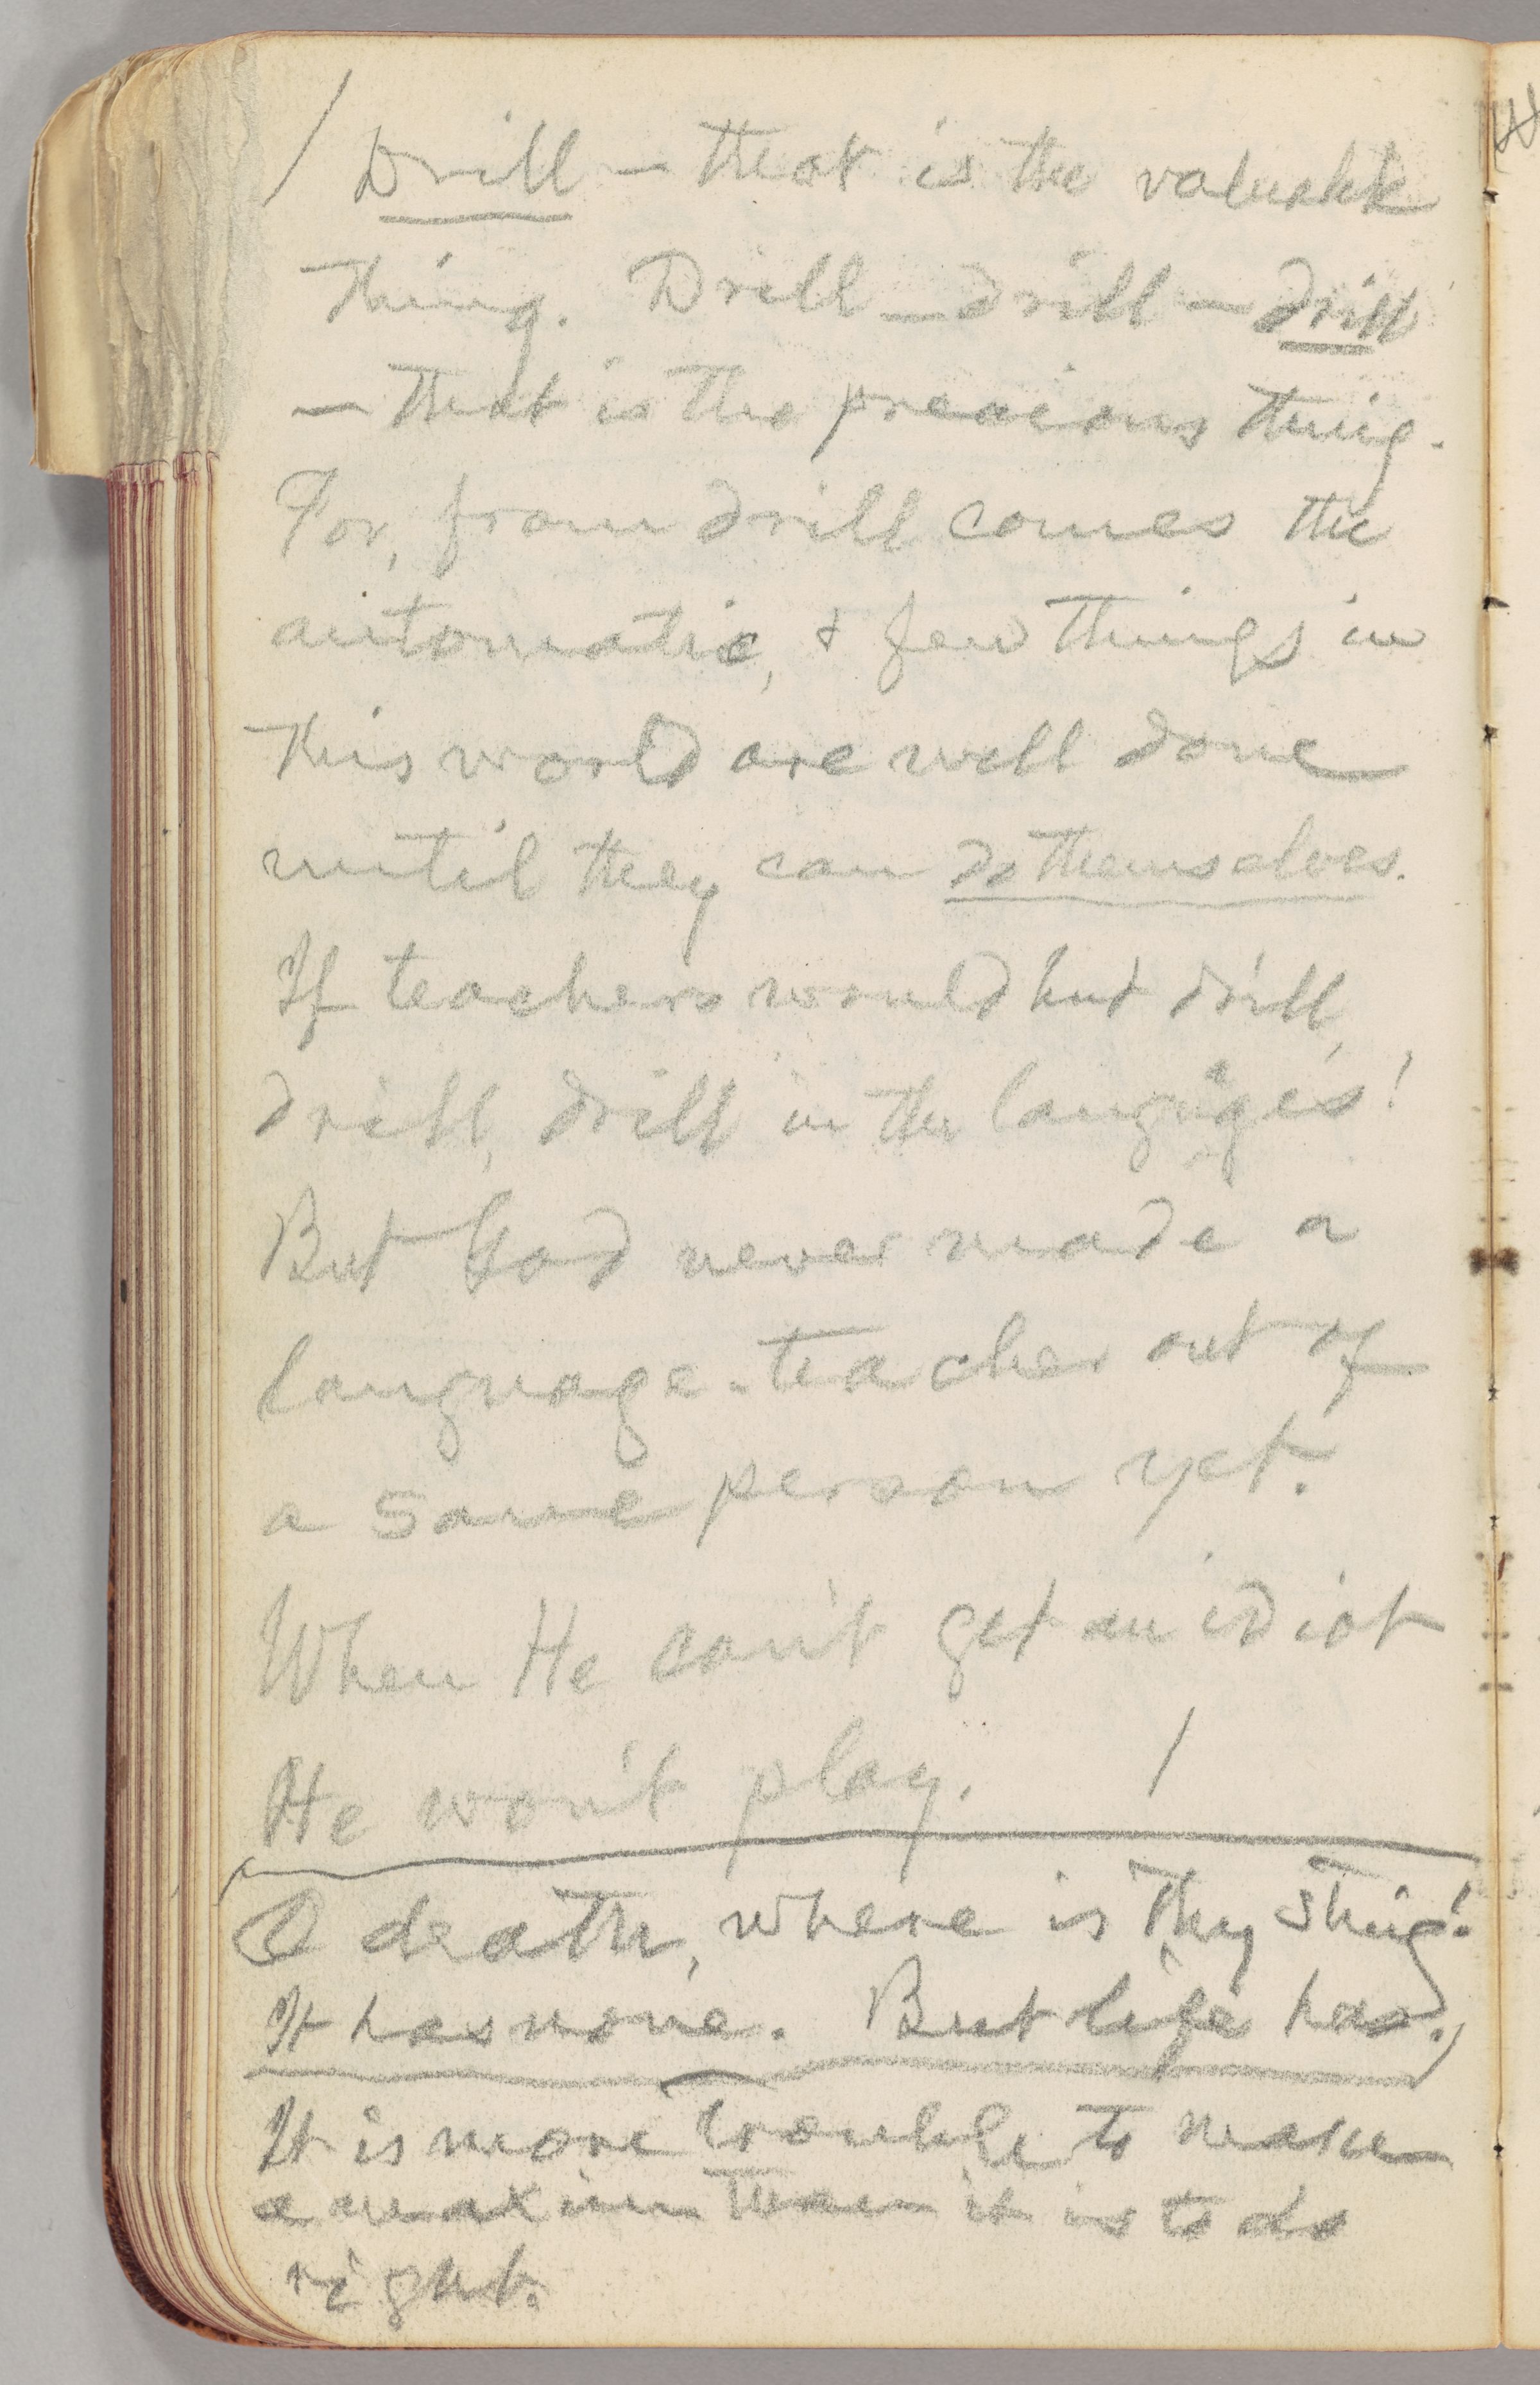 Drill — that is the valuable
thing. Drill — drill — drill
— that is the precious thing.
For, from drill comes the
automatic, & few things in
this world are well done
until they can do themselves.
If teachers would but drill,
drill, drill in the languages!
But God never made a
language-teacher out of
a sane person yet.
When He can't get an idiot
He won't play. /
O death, where is thy sting!
It has none. But life has.
It is more trouble to make
a maxim than it is to do
right.